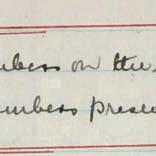 mbers on the
members presen